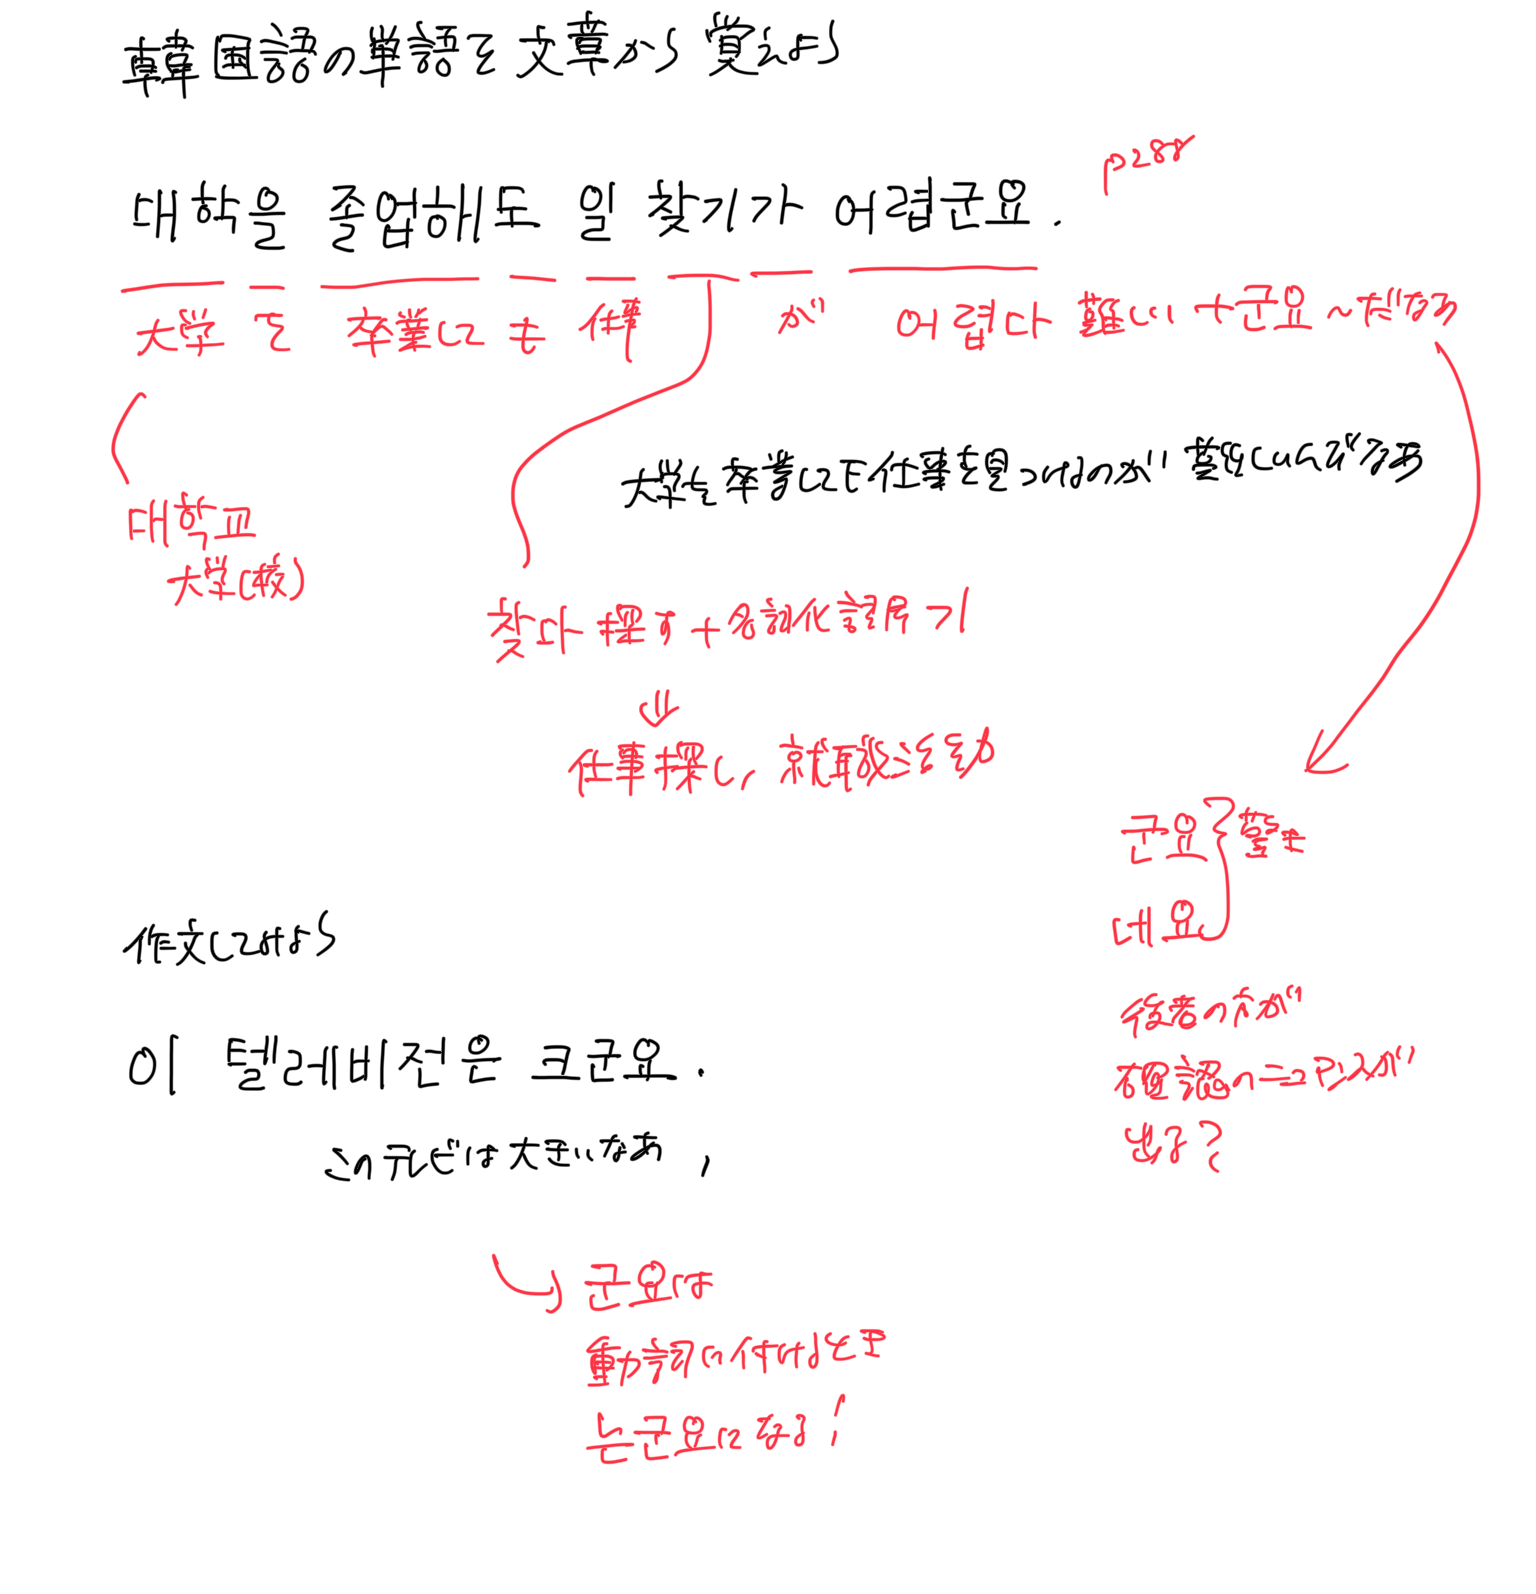 韓国語の単語を文章から覚えよう
p288
대학을 졸업해도 일 찾기가 어렵군요.
大学 を 卒業して も 仕事 が 어렵다 難しい +군요 ~だなあ
大学を卒業しても仕事を見つけるのが難しいんだなあ
대학교
大学(校)
찾다 探す+名詞化語尾 기
⇓
仕事探し、就職活動
군요 } 驚き
네요
後者の方が
確認のニュアンスが
出る?
作文してみよう
이 텔레비전은 크군요.
このテレビは大きいなあ,
군요は
動詞に付けるとき
는군요になる!